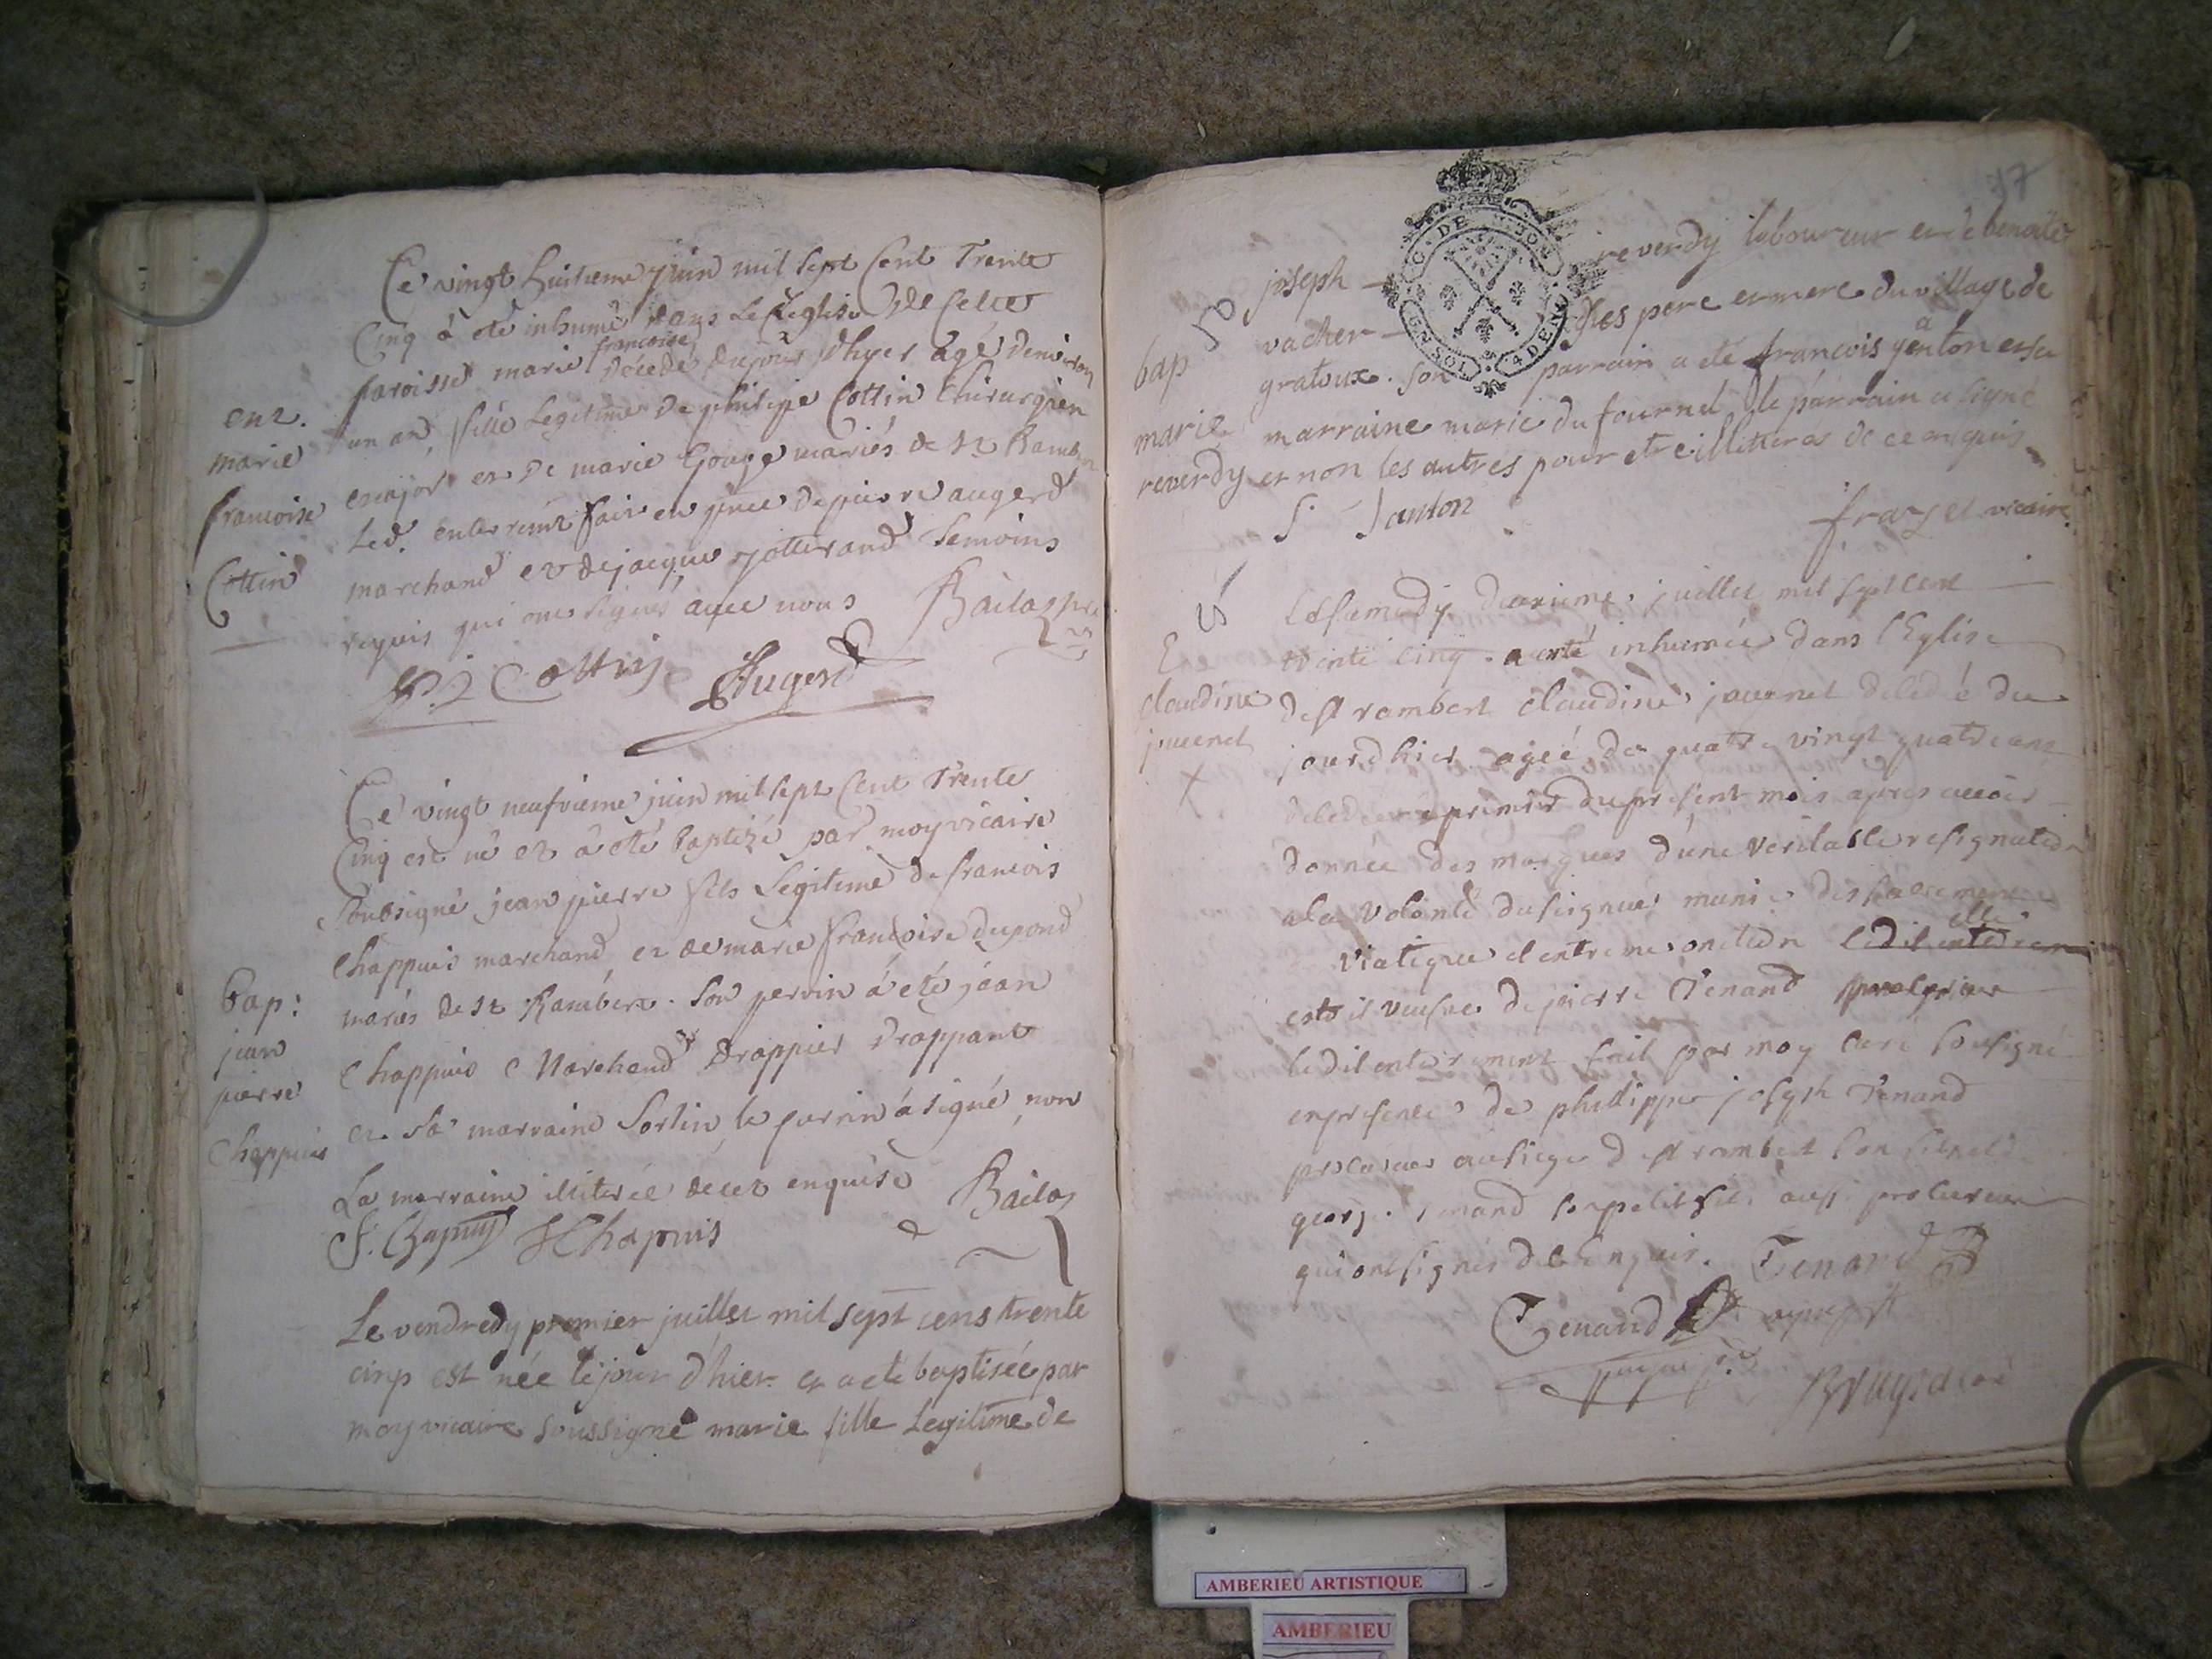 Ce vingt huitieme juin mil sept Cent Trente
Cinq á eté inhumé dans Le Leglise de Cette
paroisse marie francoise décedé du jour d'hyer agé denviron
un an, fille Legitime de philipe Cottin Chirurgien
major et De marie Gouge mariés de st Rambert
Led. enterremt fait en pnce de pierre augerd
marchand et de jacque jotterand temoins
requis qui ont signés avec nous
P. j Cottin Augerd
ent.
marie
francoise
Cottin
Ce vingt neufvieme juin mil sept Cent Trente
Cinq est né et á eté baptizé par moy vicaire
soubsigné jean pierre fils Legitime de francois
Chappuis marchand et de marie francoise dupond
mariés de st Rambert. Son perrin á eté jéan
Chappuis Marchand Drappier Drappant
et sa marraine Sorlin, le parrin á signé non
La marraine illiterée de cet enquise
f. Chapuis Chapuis
bap:
jean
pierre
Chappuis
Le vendredy premier juillet mil sept cens trente
cinq est née le jour d'hier et a eté baptisée par
moy vicaire soussigné marie fille Legitime de
17
joseph reverdy laboureur et de benoite
vacher ses pere et mere du village de
gratoux. son parrain a eté francois ganton et sa
marraine marie du fournel le parrain a signé
et non les autres pour etre illitterés de ce enquis
f. Janton vicaire
bap
marie
reverdy
Le samedy deuxieme juillet mil sept cent
trente cinq a eté inhumée dans l'Eglise
de st rambert claudine jouenet decedée du
jour d'hier agée de quatre vingt quatre ans
decedée premier du present mois apres avoir
donnée des marques d'une veritable resignation
a la volonté du seigneur munie des sacrements
viatique et extreme onction elle
veufve de pierre Tenand
le dit enterrement fait par moy curé sousigné
en presence de phillippe joseph Tenand
procureur au siege de st rambert
george Tenand son petit fils aussi procureur
qui ont signés de ce enquis. Tenand
Tenand
E
claudine
jouenet
AMBERIEU ARTISTIQUE
AMBERIEU